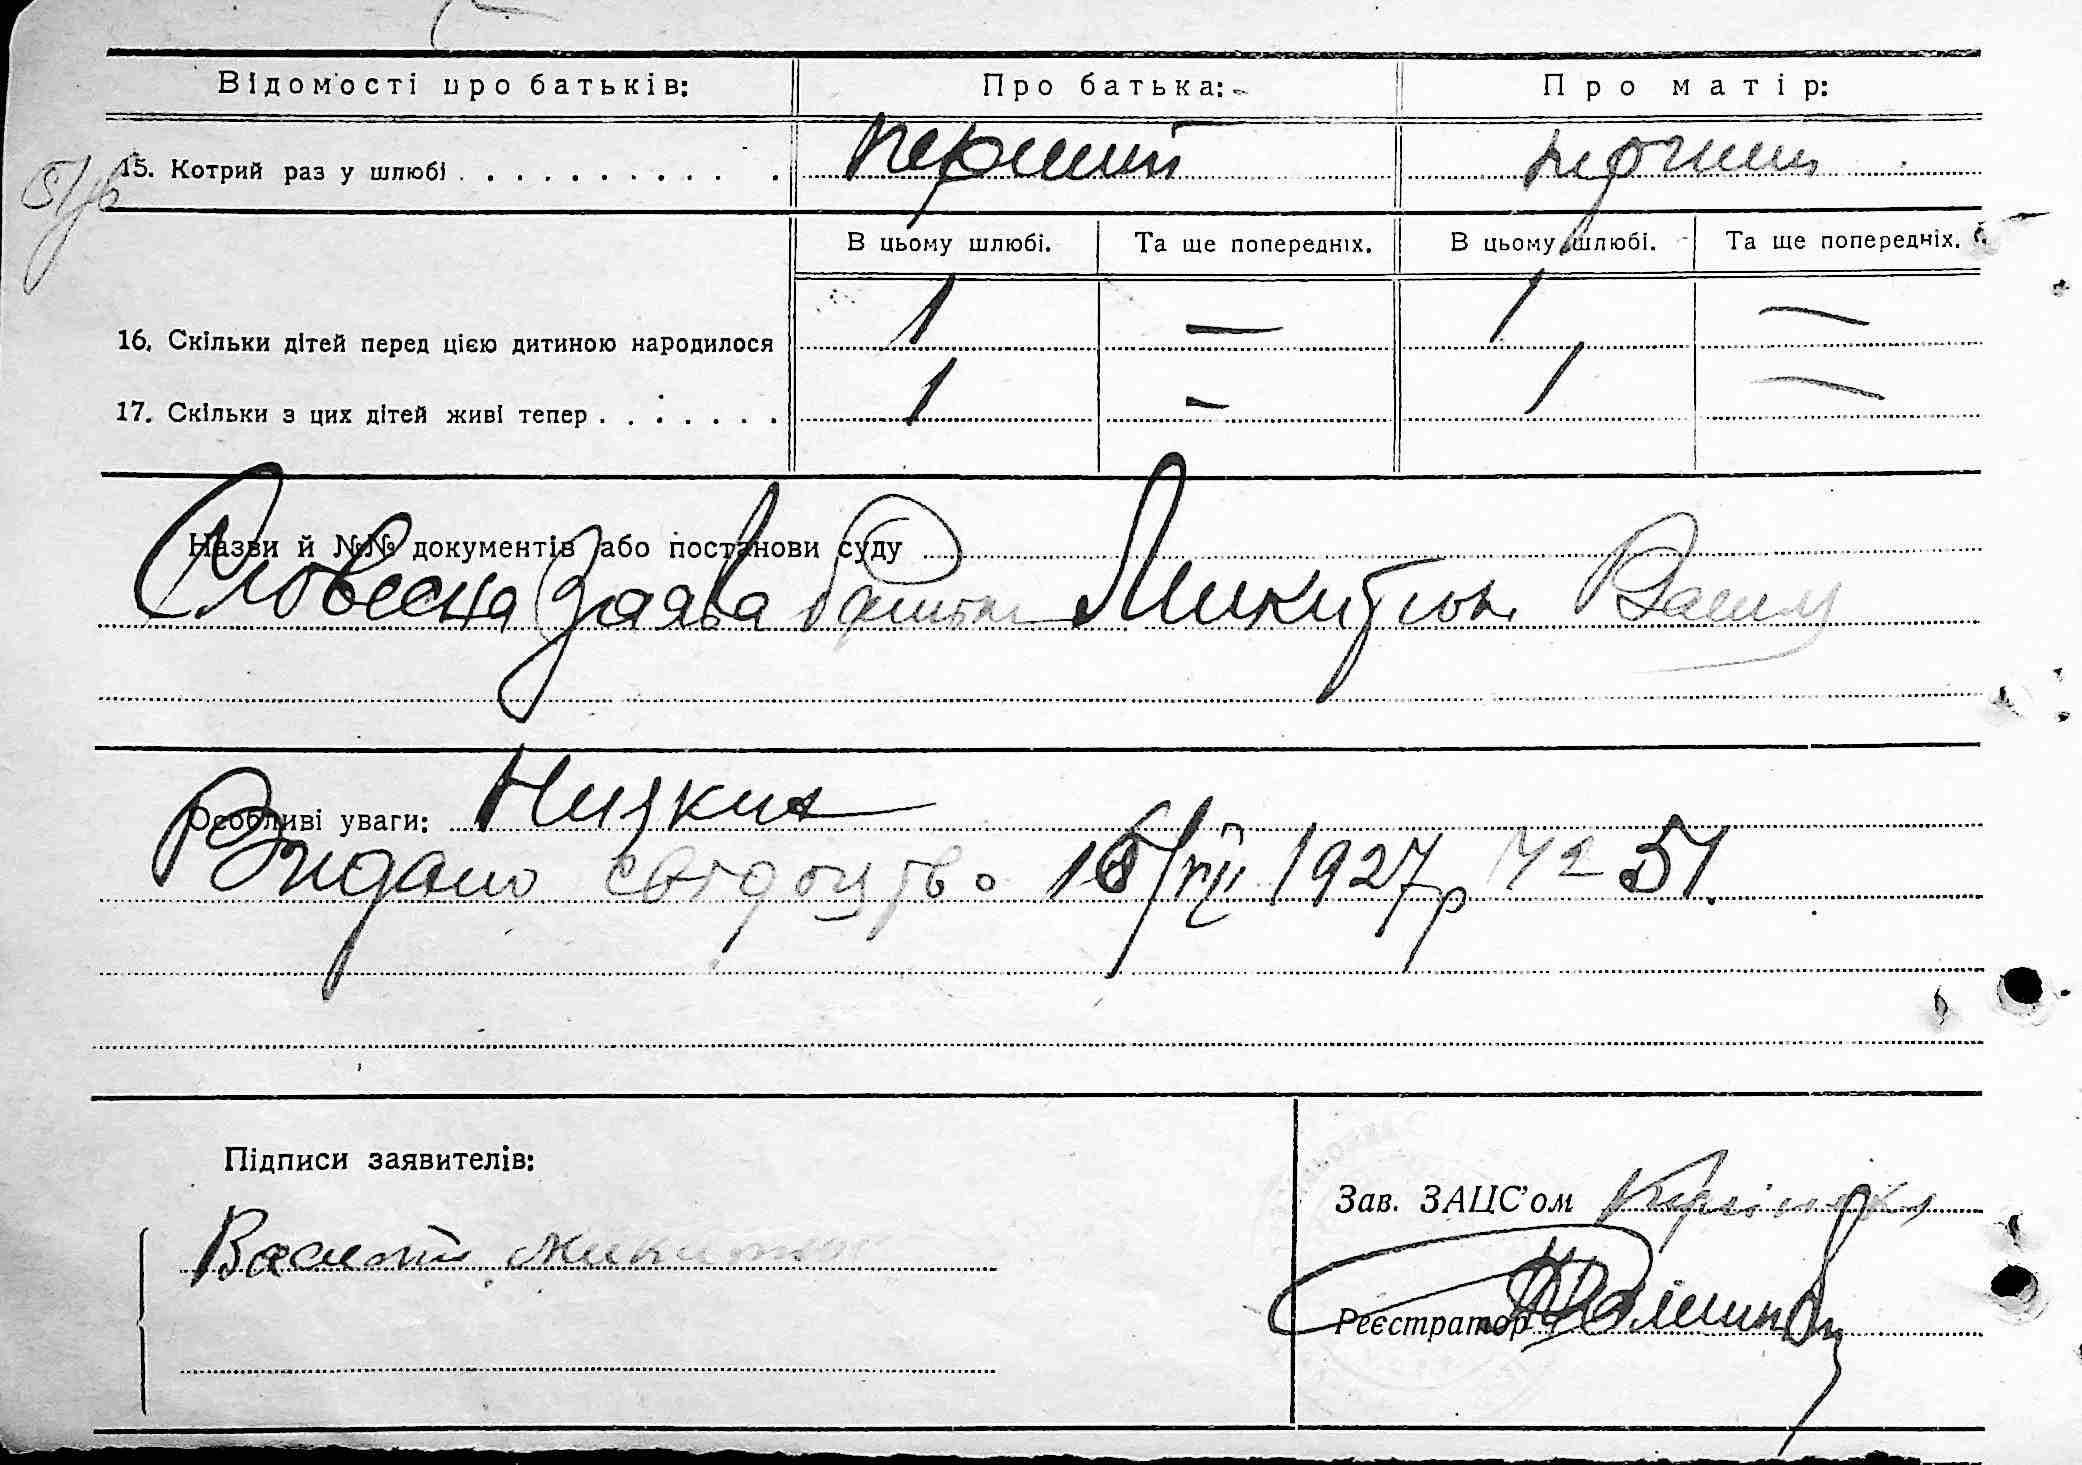 Відомості про батьків: Про батька: Про матір:
15. Котрий раз у шлюбі . . . . . . . . . . перший перший
В цьому шлюбі. Та ще попередніх. В цьому шлюбі. Та ще попередніх.
16. Скільки дітей перед цією дитиною народилося 1 — 1 —
17. Скільки з цих дітей живі тепер . . . . . . . 1 — 1 —
Назви й №№ документів або постанови суду
Словесна заява батька Микитюк
Особливі уваги:
Видано свідоцтво 1927р № 51.
Підписи заявителів:
Зав. ЗАЦС'ом
Василь Микитюк
Реєстратор